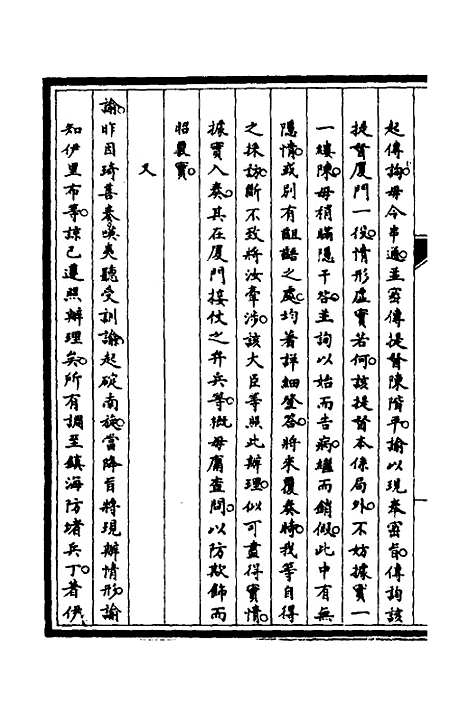 起傳詢毋令串通並密傳提督陳階平諭以現奉密旨傳詢該
提督廈門一役情形虛實若何該提督本係局外不妨據實一
一縷陳毋稍瞞隱干咎並詢以始而告病繼而銷假此中有無
隱情或別有齟齬之處均著詳細登答將來覆奏時我等自得
之採訪斷不致將汝牽涉該大臣等照此辦理似可盡得實情
據實入奏其在廈門接仗之弁兵等概毋庸查問以防欺飾而
昭覈實
又
諭昨因琦善奏嘆夷聽受訓諭起碇南旋當降旨將現辦情形諭
知伊里布等諒已遵照辦理矣所有調至鎮海防堵兵丁著伊